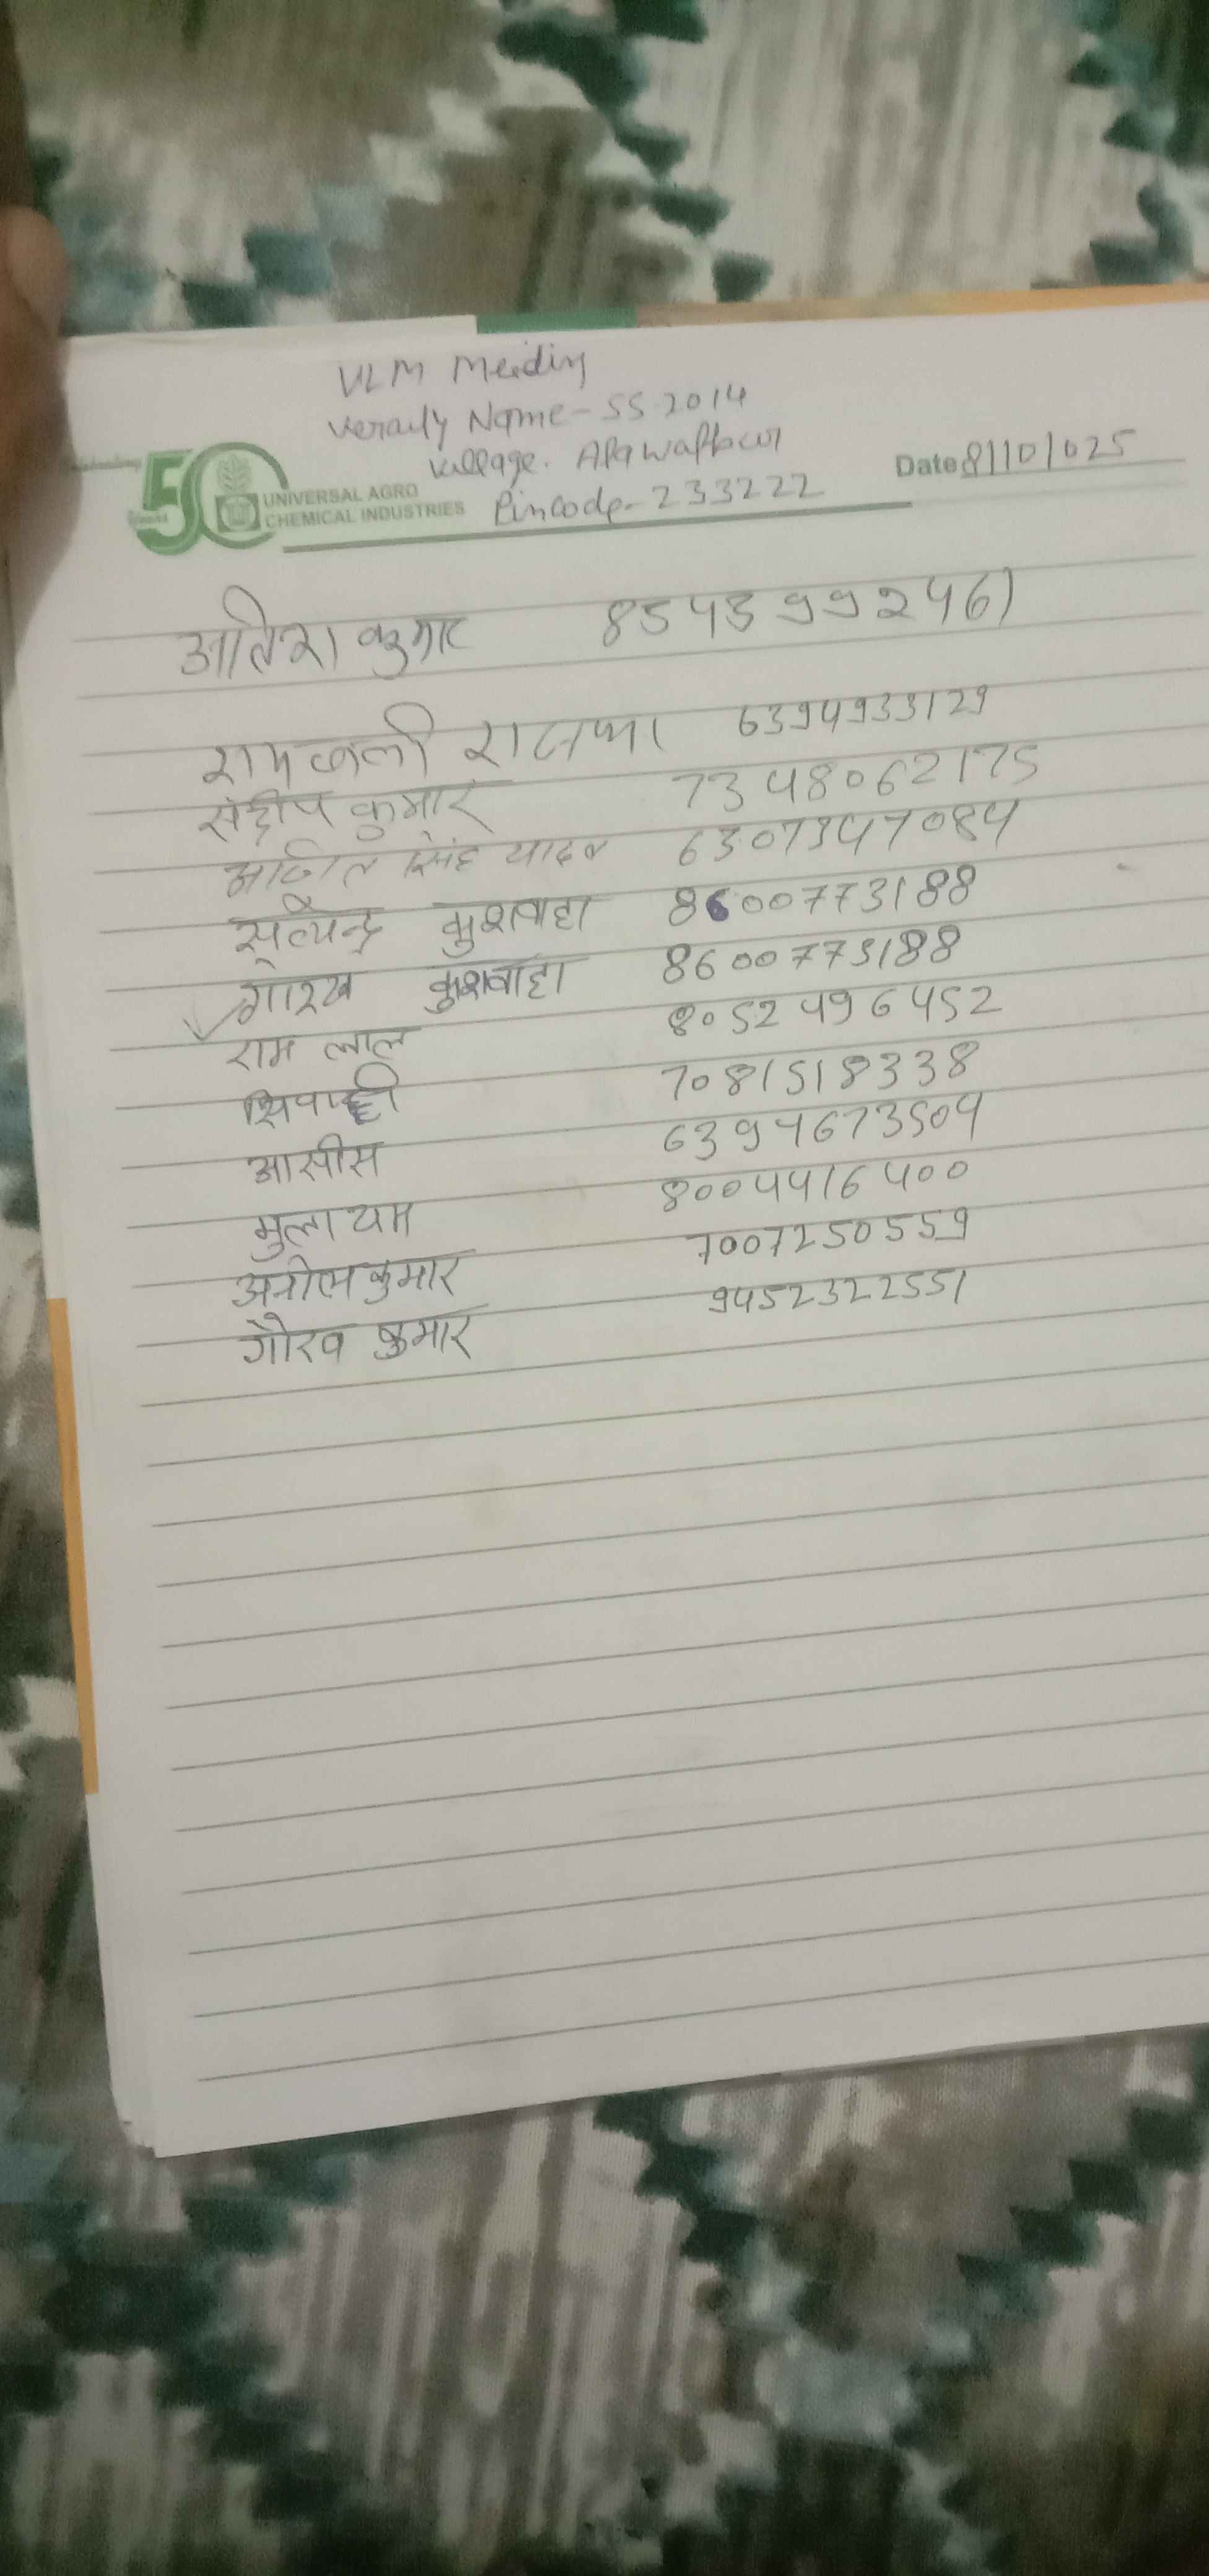 VLM Meiding
Veraity Name - SS-2014
Village. Alawalpur
Pincode - 233222
50
UNIVERSAL AGRO
CHEMICAL INDUSTRIES
Date 8/10/025
कुमार 85439992461
रामछली 6394933129
संदीप कुमार 7348062175
सिंह यादव 6307947084
सत्येन्द्र कुशवाहा 8600773188
गोरख कुशवाहा 8600773188
राम लाल 80524996452
सिपाही 7081518338
आसीस 6394673504
मुलायम 8004416400
कुमार 7007250559
गौरव कुमार 9452322551